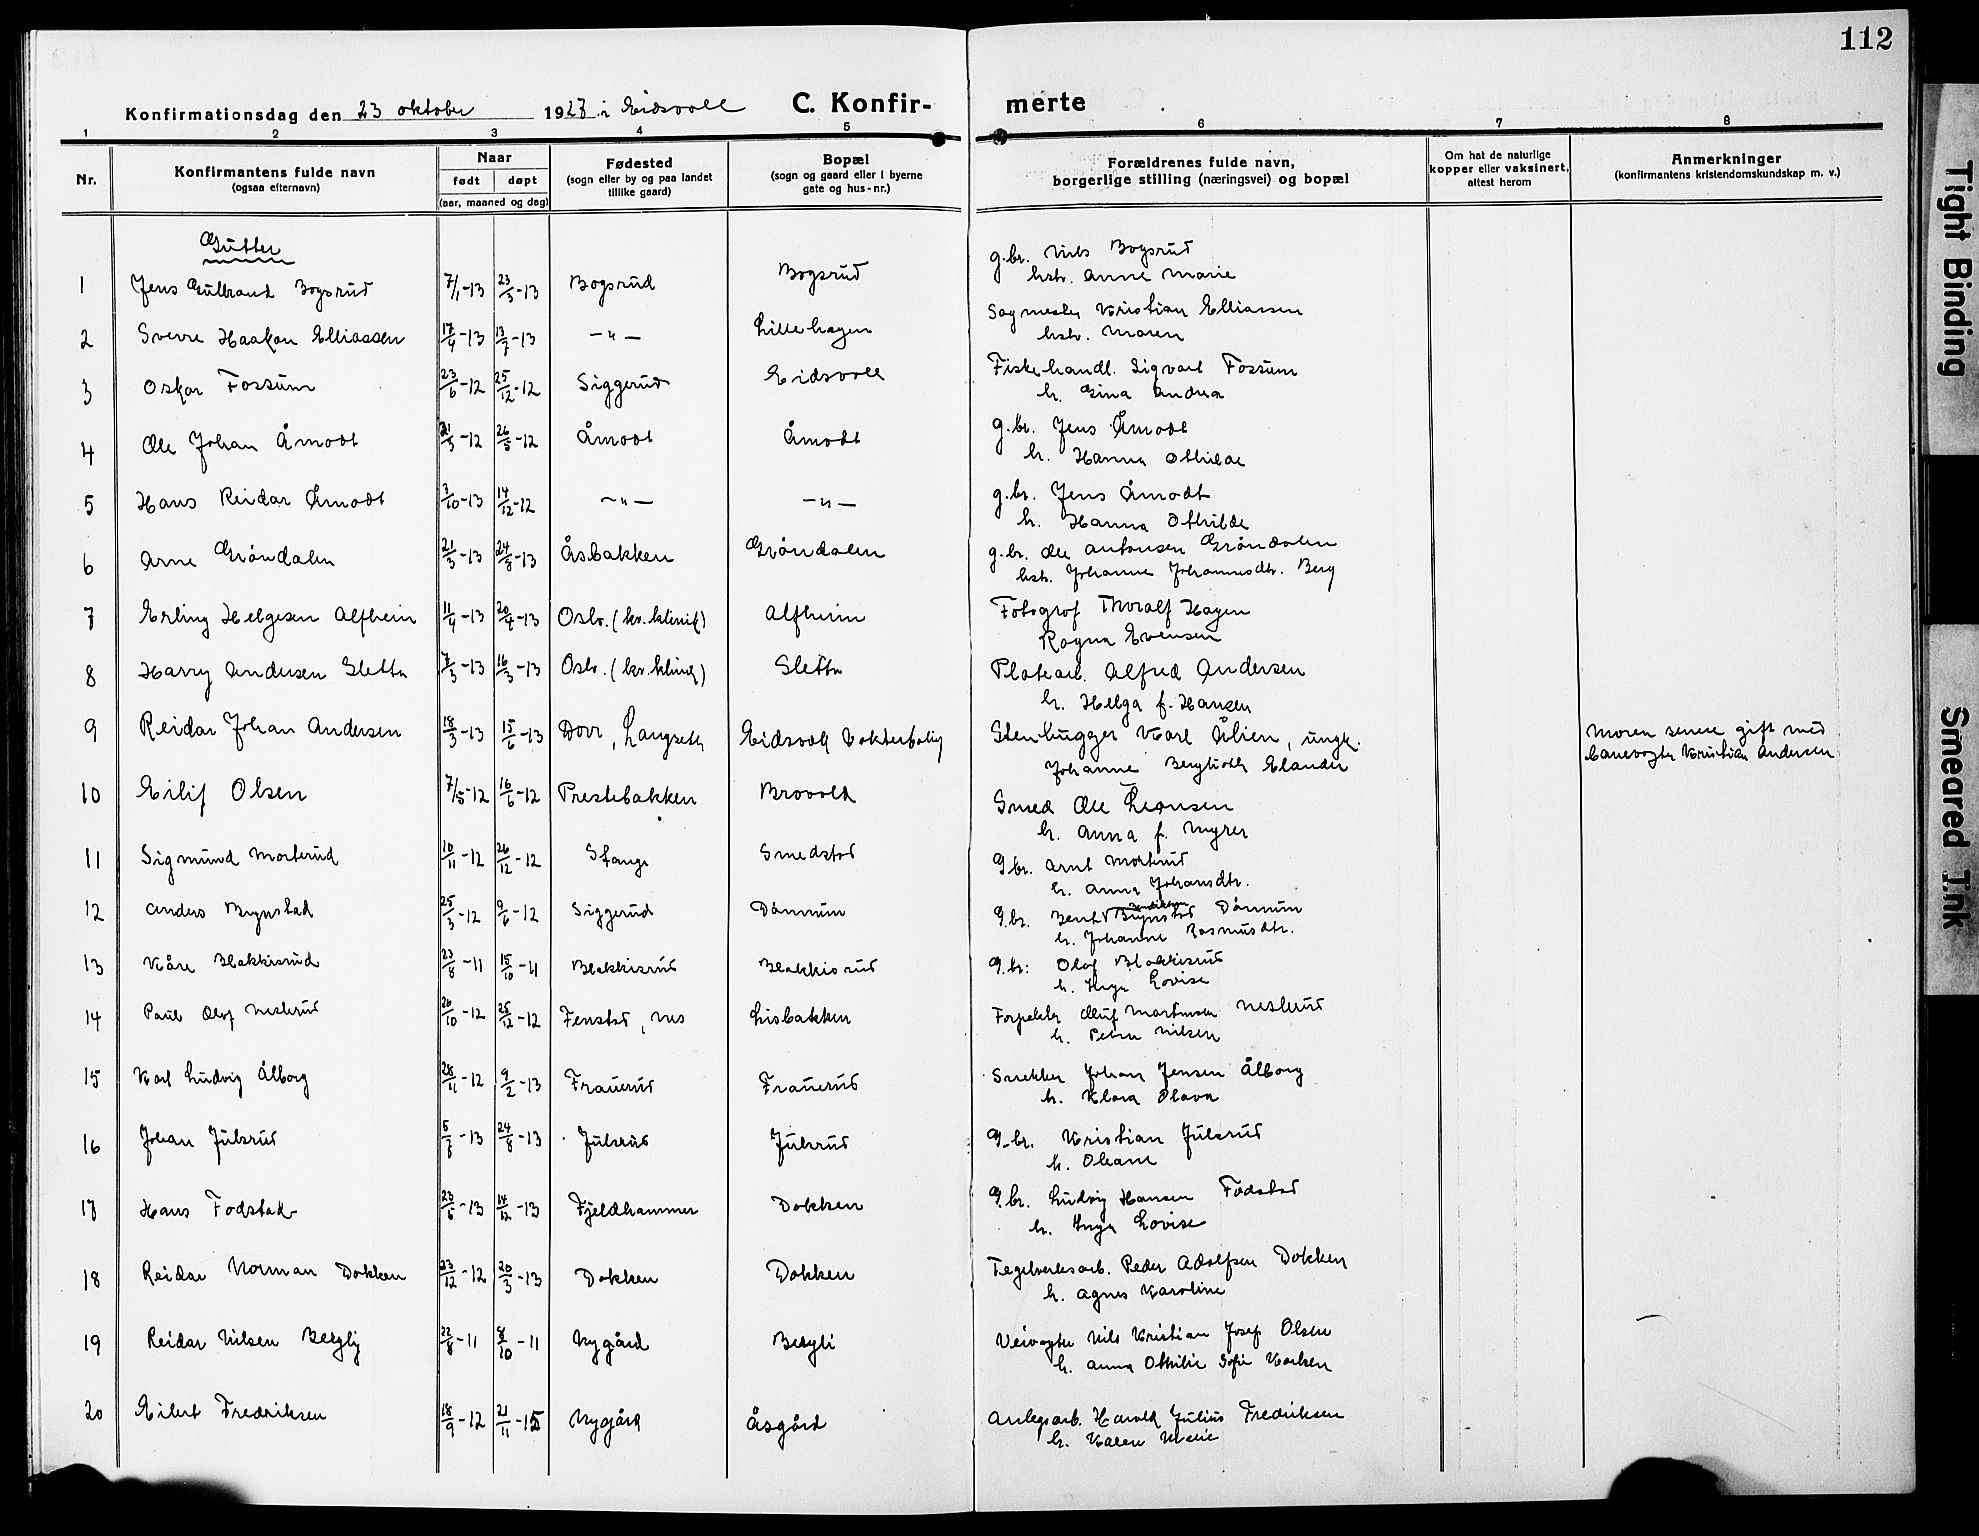 112
Konfirmationsdag den 23 oktober 1927 i Eidsvoll C. Konfir- merte
1 2 3 4 5 6 7 8
Nr. Konfirmantens fulde navn (ogsaa efternavn) Naar født døpt (aar, maaned og dag) Fødested (sogn eller by og paa landet tillike gaard) Bopæl (sogn og gaard eller i byerne gate og hus-nr.) Forældrenes fulde navn, borgerlige stilling (næringsvei) og bopæl Om hat de naturlige kopper eller vaksinert, attest herom Anmerkninger (konfirmantens kristendomskundskap m. v.)
Gutter
1 Jens Gulbrand Bogsrud 7/1-13 23/3-13 Bogsrud Bogsrud g.br. Nils Bogsrud
hstr. Anne Marie
2 Sverre Haakon Elliassen 17/4-13 13/7-13 -"- Lillehagen Sagmester Kristian Elliassen
hstr. Maren
3 Oskar Fossum 23/6-12 25/12-12 Siggerud Eidsvoll Fiskehandl. Sigvart Fossum
h. Gina Andrea
4 Ole Johan Åmodt 21/3-12 26/5-12 Åmodt Åmodt g.br. Jens Åmodt
h. Hanna Othilde
5 Hans Reidar Åmodt 3/10-13 14/12-12 -"- -"- g.br. Jens Åmodt
h. Hanna Othilde
6 Arne Grøndalen 21/3-13 24/8-13 Åsbakken Grøndalen g.br. Ole Antonsen Grøndalen
hstr. Johanne Johannesdtr. Berg
7 Erling Helgesen Alfheim 11/4-13 20/4-13 Oslo. (kv. klinik) Alfheim Fotograf Thoralf Hagen
Ragna Evensen
8 Harry Andersen Sletta 7/3-13 16/3-13 Oslo. (kv. klinik) Sletta Platearb. Alfred Andersen
h. Helga f. Hansen
9 Reidar Johan Andersen 18/3-13 15/6-13 Dovr, Langseth Eidsvoll Vokterbolig Stenhugger Karl Ålien, ungk.
Johanne Berglioth Elander
Moren senere gift med
banevogter Kristian Andersen
10 Eilif Olsen 7/5-12 16/6-12 Prestebakken Brovold Smed Ole Leonsen
h. Anna f. Myrer
11 Sigmund Morterud 10/11-12 26/12-12 Stange Smedstad G.br. Arnt Morterud
h. Anna Johansdtr.
12 Anders Brynstad 25/3-12 9/6-12 Siggerud Dønnum G.br. Bent Brynstad Dønnum
h. Johanne Rasmusdtr.
13 Kåre Blakkisrud 23/8-11 15/10-11 Blakkisrud Blakkisrud G.br: Olaf Blakkisrud
h. Inga Lovise
14 Paul Olaf Neslerud 20/10-12 25/12-12 Fenstad, Nes Lisbakken Forpakter Oluf Martinsen Neslerud
h. Petra Nilsen
15 Karl Ludvig Ålborg 28/11-12 9/2-13 Frauerud Frauerud Snekker Johan Jensen Ålborg
h. Klara Olava
16 Johan Julsrud 5/7-13 24/8-13 Julsrud Julsrud G.br. Kristian Julsrud
h. Oleane
17 Hans Fodstad 23/6-13 14/12-13 Fjeldhammer Dokken G.br. Ludvig Hansen Fodstad
h. Inga Lovise
18 Reidar Norman Dokken 23/12-12 20/3-13 Dokken Dokken Tegelverksarb. Peder Adolfsen Dokken
h. Agnes Karoline
19 Reidar Nilsen Bergly 22/8-11 8/10-11 Nygård Bergli Veivogter Nils Kristian Josef Olsen
h. Anna Othilie Sofie Karlsen
20 Eilert Fredriksen 18/9-12 21/11-15 Nygård Åsgård Anlegsarb. Harald Julius Fredriksen
h. Karen Marie
Tight Binding
Smeared Ink